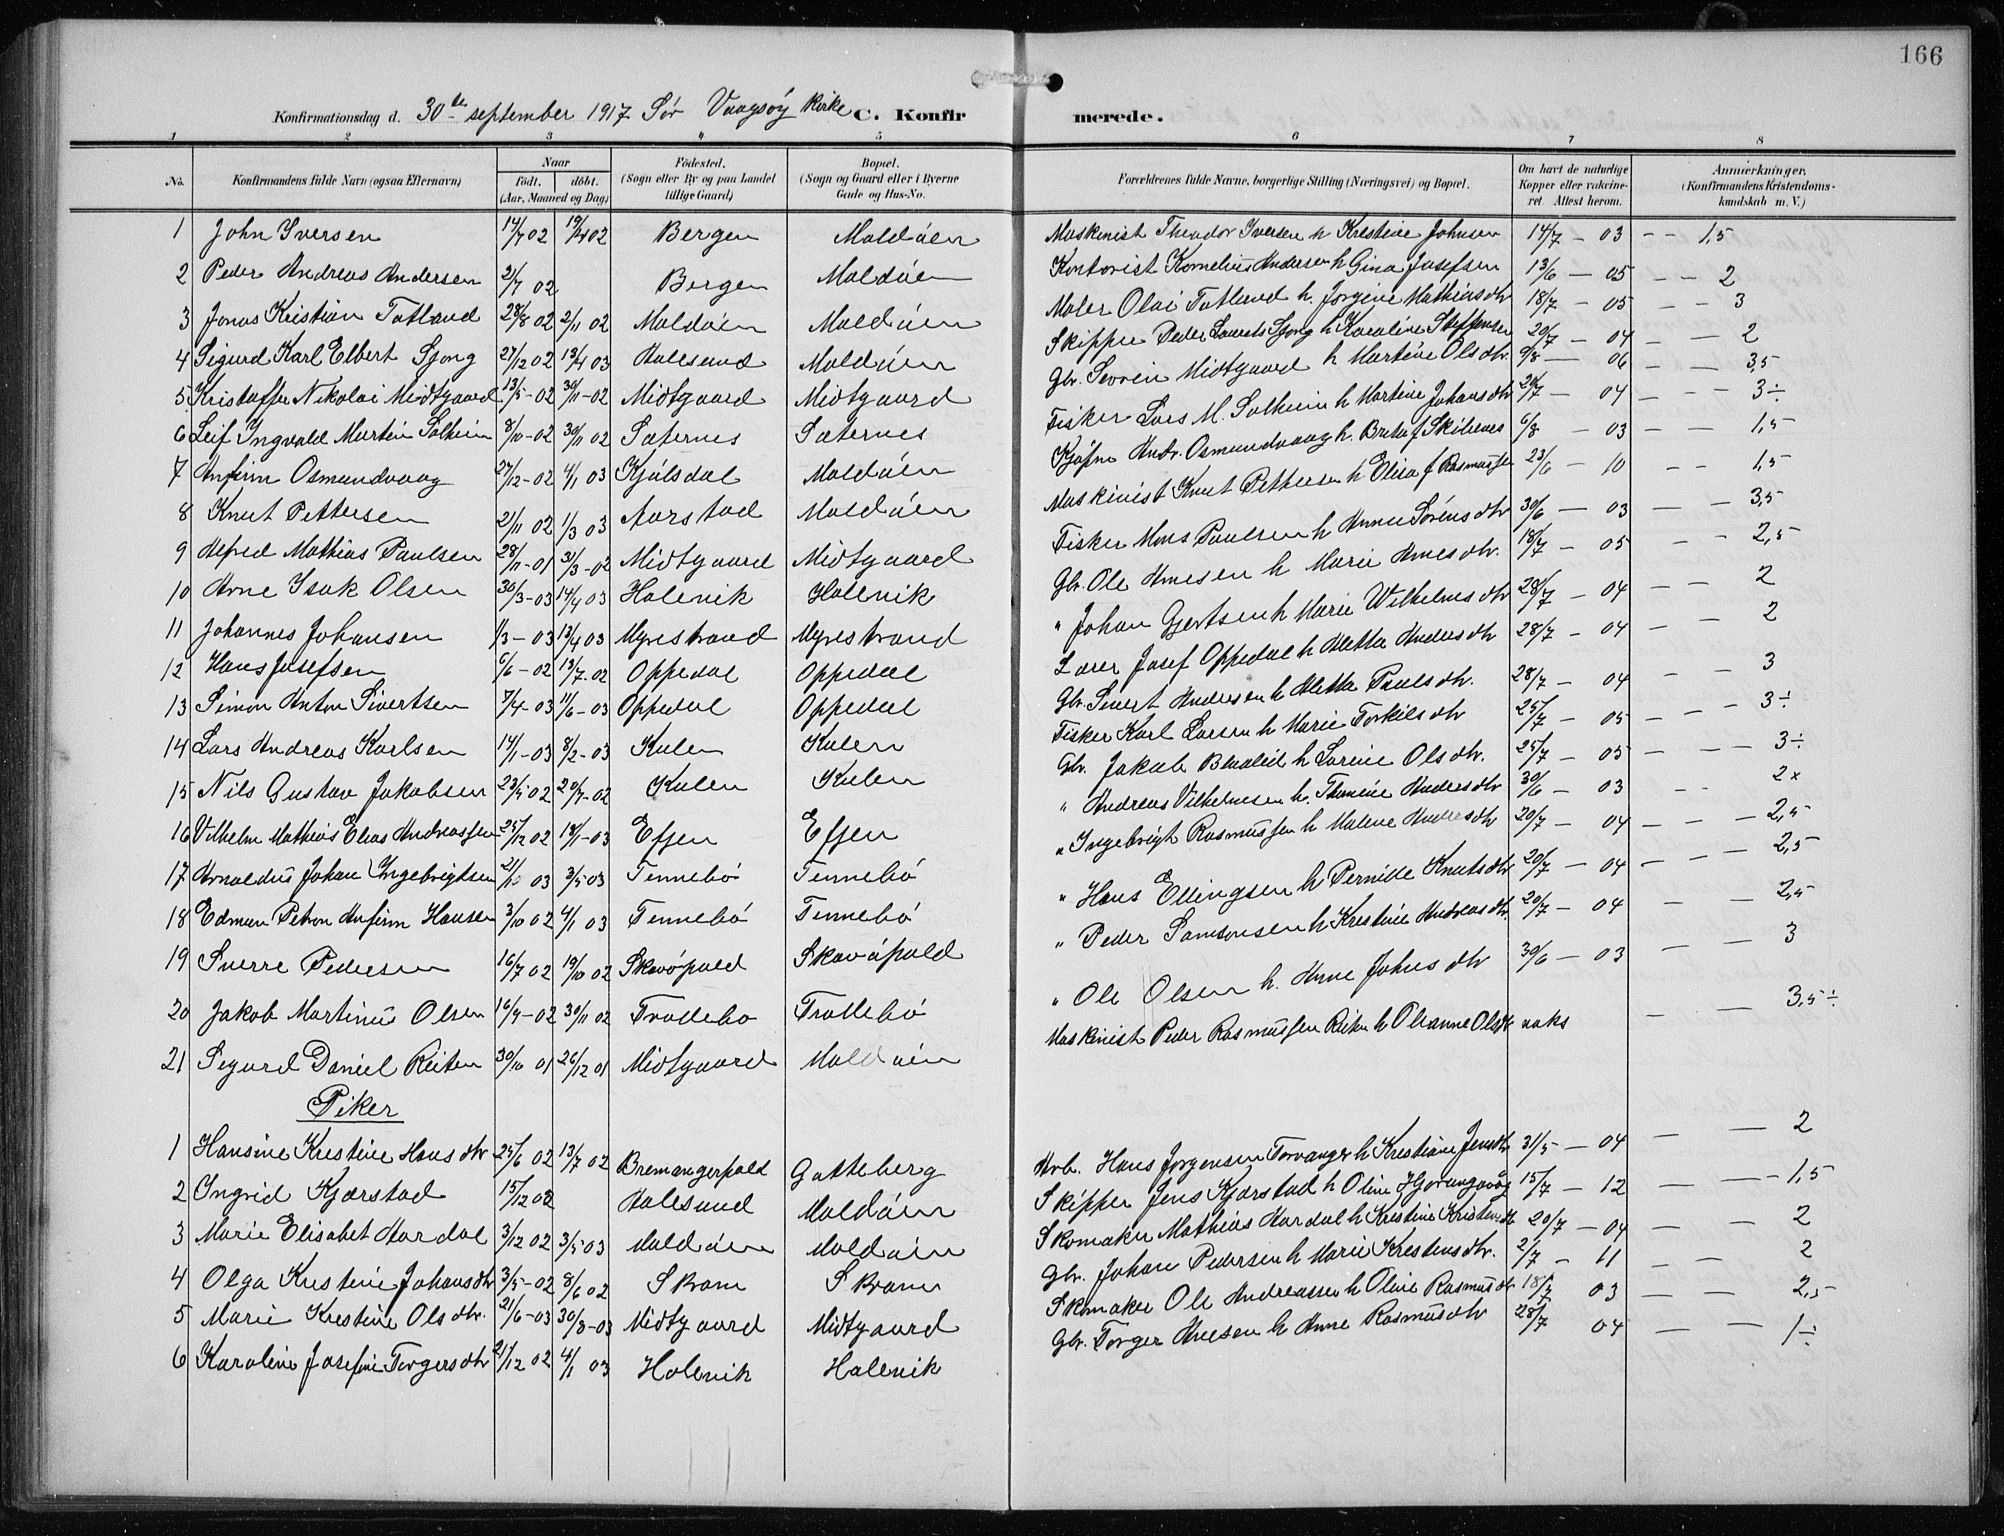 166
Konfirmationsdag d. 30te september 1917 Sør Vaagsøy Kirke C. Konfirmerede.
1 2 3 4 5 6 7 8
No. Konfirmandens fulde Navn (ogsaa Efternavn) Naar födt. döbt. (Aar, Maaned og Dag) Födested. (Sogn eller By og paa Landet tillige Gaard) Bopæl. (Sogn og Gaard eller i Byerne Gade og Hus-No. Forældrenes fulde Navne, borgerlige Stilling (Næringsvei) og Bopæl. Om havt de naturlige Kopper eller vakcineret Attest herom. Anmærkninger. (Konfirmandens Kristendomskundskab m. V.)
1 John Iversen 14/7 02 Bergen Maldøen Maskinist Theodor Iversen h Kristine Johnsen 14/7 - 03 - - 1,5
2 Peder Andreas Andersen 2/7 02 Bergen Maldøen Kontorist Kornelius Andersen h Gina Josefsen 13/6 - 05 - - 2
3 Jonas Kristian Totland 28/8 02 2/11 02 Maldøen Maldøen Maler Olai Totland h. Jørgine Mathiasdtr 18/7 - 05 - - 3
4 Sigurd Karl Elbert Sjong 27/12 02 13/4 03 Aalesund Maldøen Skipper Peder Laurits Sjong h Karoline Steffensen 20/7 - 04 - 2
5 Kristoffer Nikolai Midtgaard 13/5 - 02 30/11 - 02 Midtgaard Midtgaard Gbr. Severin Midtgaard h Martine Olsdtr. 9/8 - 06 - - 3,5
6 Leif Ingvald Martin Solheim 8/10 - 02 30/11 02 Sæternes Sæternes Fisker Lars M. Solheim h Martine Johansdtr 20/7 - 04 - - 3÷
7 Anfinn Osmundvaag 27/12 - 02 4/1 03 Kjølsdal Maldøen Kjøpm Andr. Osmundvaag h. Brita f Skibenes 6/8 - 03 - - 1,5
8 Knut Pettersen 21/11 02 1/3 03 Aarstad Maldøen Maskinist Knut Pettersen h Elisa f Rasmussen 23/6 - 10 - - 1,5
9 Alfred Mathias Paulsen 28/11 - 01 31/3 - 02 Midtgaard Midtgaard Fisker Mons Paulsen h Anne Sørensdtr 30/6 - 03 - - 3,5
10 Arne Isak Olsen 30/3 - 03 14/4 03 Halenik Halenik Gbr. Ole Arnesen h Marie Arnesdtr. 18/7 - 05 - - 2,5
11 Johannes Johansen 1/3 - 03 13/4 03 Myrestrand Myrestrand " Johan Gjertsen h Marie Wilhelmsdtr 28/7 - 04 - - 2
12 Hans Josefsen 6/6 - 02 13/7 - 02 Oppedal Oppedal Lærer Josef Oppedal h Aletta Andersdtr 28/7 - 04 - - 2
13 Simon Anton Sivertsen 7/4 - 03 11/6 - 03 Oppedal Oppedal Gbr. Sivert Andersen h Aletta Paulsdtr. 28/7 - 04 - - 3
14 Lars Andreas Karlsen 14/1 - 03 8/2 - 03 Kulen Kulen Fisker Karl Larsen h Marie Torkilsdtr 25/7 - 05 - - 3÷
15 Nils Gustav Jakobsen 23/5 02 20/7 - 02 Kulen Kulen Gbr. Jakob h Sorine Olsdtr. 25/7 - 05 - - 3÷
16 Vilhelm Mathias Elias Andreassen 25/12 02 18/1 - 03 Efjen Efjen " Andreas Vilhelmsen h. Thomine Andersdtr 30/6 - 03 - - 2x
17 Arnoldus Johan Ingebrigtsen 03 3/5 03 Tennebø Tennebø " Ingebrigt Rasmussen h Malene Andersdtr 20/7 - 04 - - 2,5
18 Edman Petron Anfinn Hansen 3/10 02 4/1 03 Tennebø Tennebø " Hans Ellingsen h Pernille Knutsdtr 20/7 - 04 - - 2,5
19 Sverre Pedersen 16/7 02 19/10 02 Skavøpold Skavøpold " Peder Samsonsen h Kristine Andreasdtr. 20/7 - 04 - - 2,5
20 Jakob Martinus Olsen 16/9 - 02 30/11 02 Trollebø Trollebø " Ole Olsen h. Anne Johnsdtr 30/6 - 03 - - 3
21 Sigurd Daniel Reiten 30/10 01 26/12 01 Midtgaard Maldøen Maskinist Peder Rasmussen Reiten h Olianne Olsdtr vaks - - 3,5÷
Piker
1 Hansine Kristine Hansdtr 25/6 02 13/7 02 Bremangerpold Gatteberg Arb. Hans Jørgensen Torvanger h Kristiane Jensdtr 31/5 - 04 - - 2
2 Ingrid Kjørstad 15/12 02 Aalesund Maldøen Skipper Jens Kjørstad h Oline Hjørungavåg 15/7 - 12 - - 1,5
3 Marie Elisabet Hardal 3/12 02 3/5 03 Maldøen Maldøen Skomaker Mathias Hardal h Kristine Kristensdtr 20/7 - 04 - - 2
4 Olga Kristine Johansdtr 3/5 - 02 8/6 02 Skram Skram Gbr. Johan Pedersen h Marie Kristensdtr. 2/7 - 11 - - 2
5 Marie Kristine Olsdtr. 21/6 - 03 30/8 - 03 Midtgaard Midtgaard Skomaker Ole Andreassen h Oline Rasmusdtr 18/7 03 - - 2,5
6 Karoline Josefine Torgersdtr 21/12 02 4/1 03 Holenik Halenik Gbr. Torger Anesen h Anne Rasmusdtr 28/7 04 - - 1÷